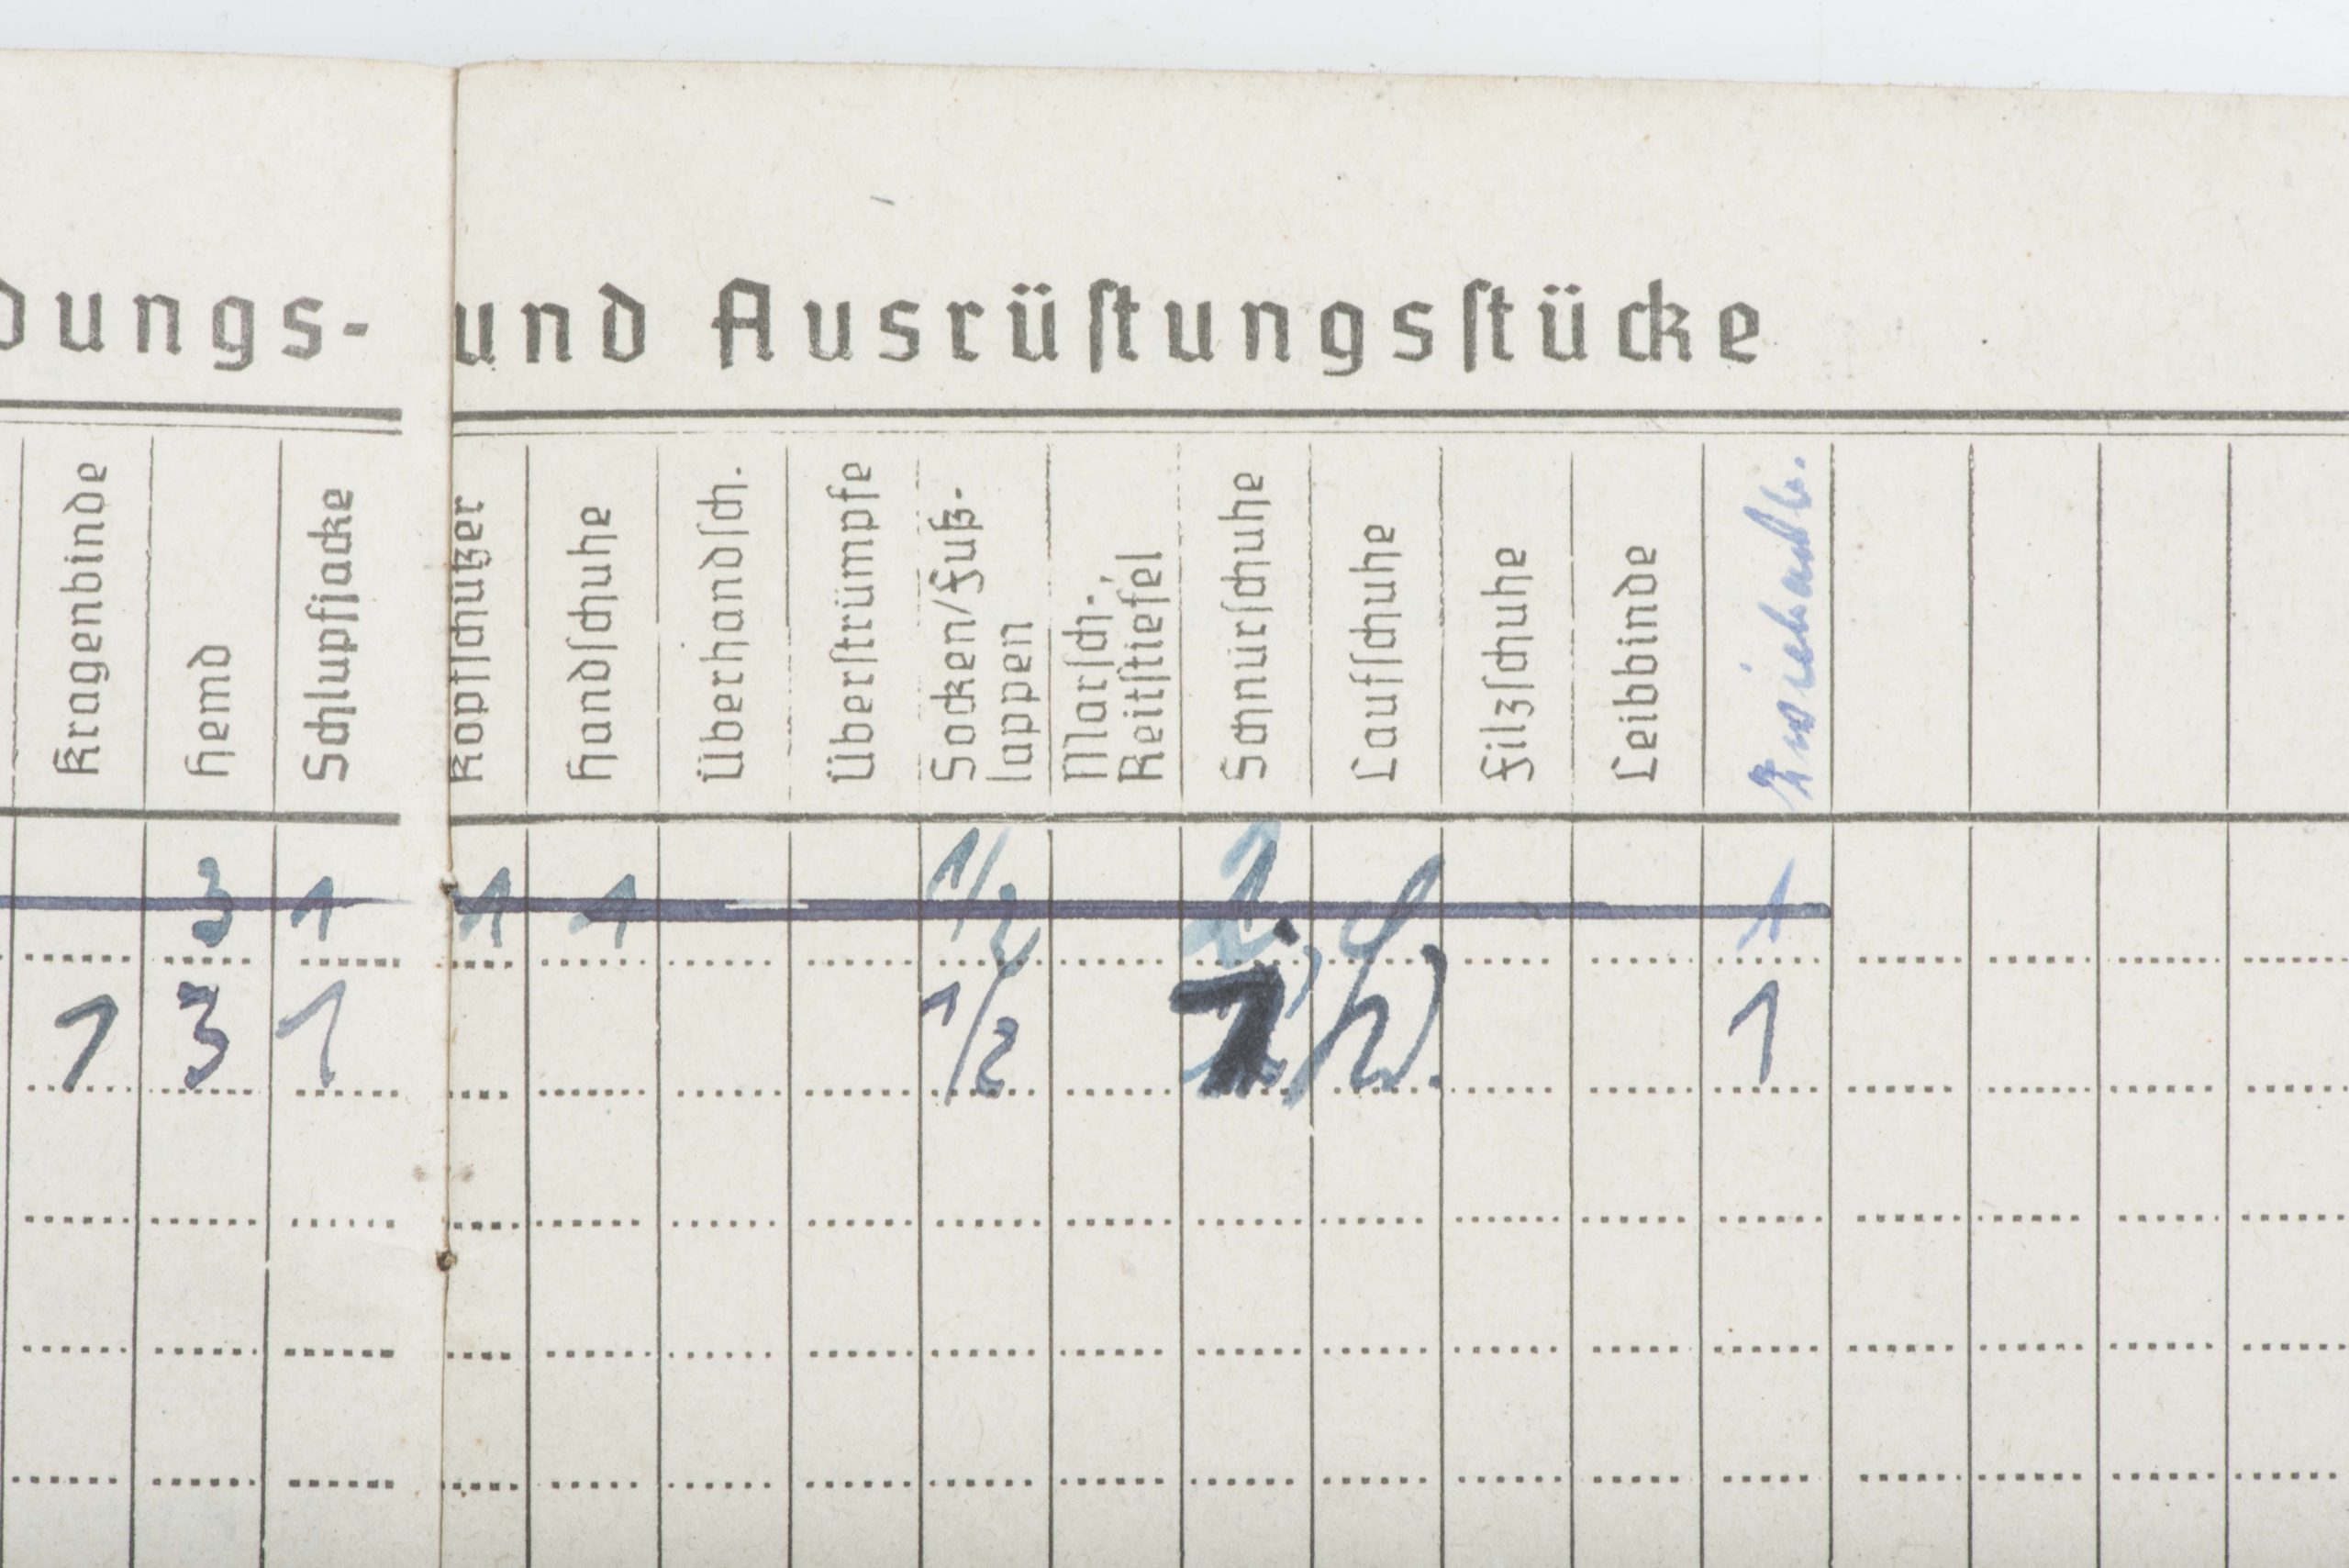 dungs- und Ausrüstungsstücke
Kragenbinde
Hemd
Schlupfjacke
Kopfschützer
Handschuhe
Überhandsch.
Überstrümpfe
Socken/Fuß-
lappen
Marsch-,
Reitstiefel
Schnürschuhe
Laufschuhe
Filzschuhe
Leibbinde
3 1 1 1 1/2 2 1
1 3 1 1/2 1 1